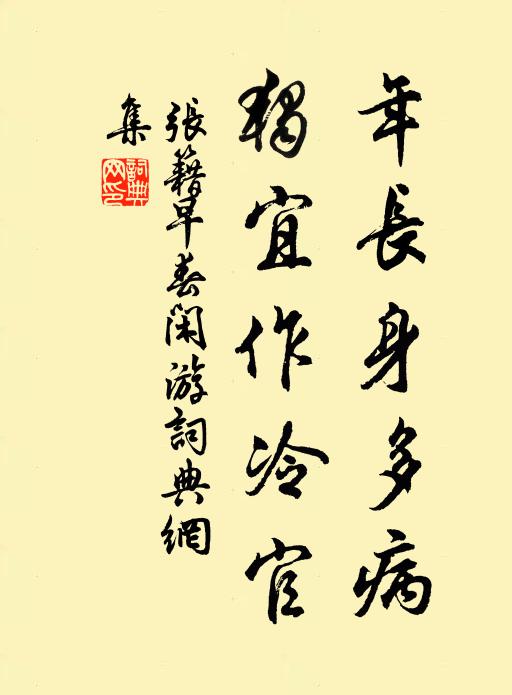 年長身多病
獨宜作冷官
張籍早春閑游詞典網
集
詞典網印